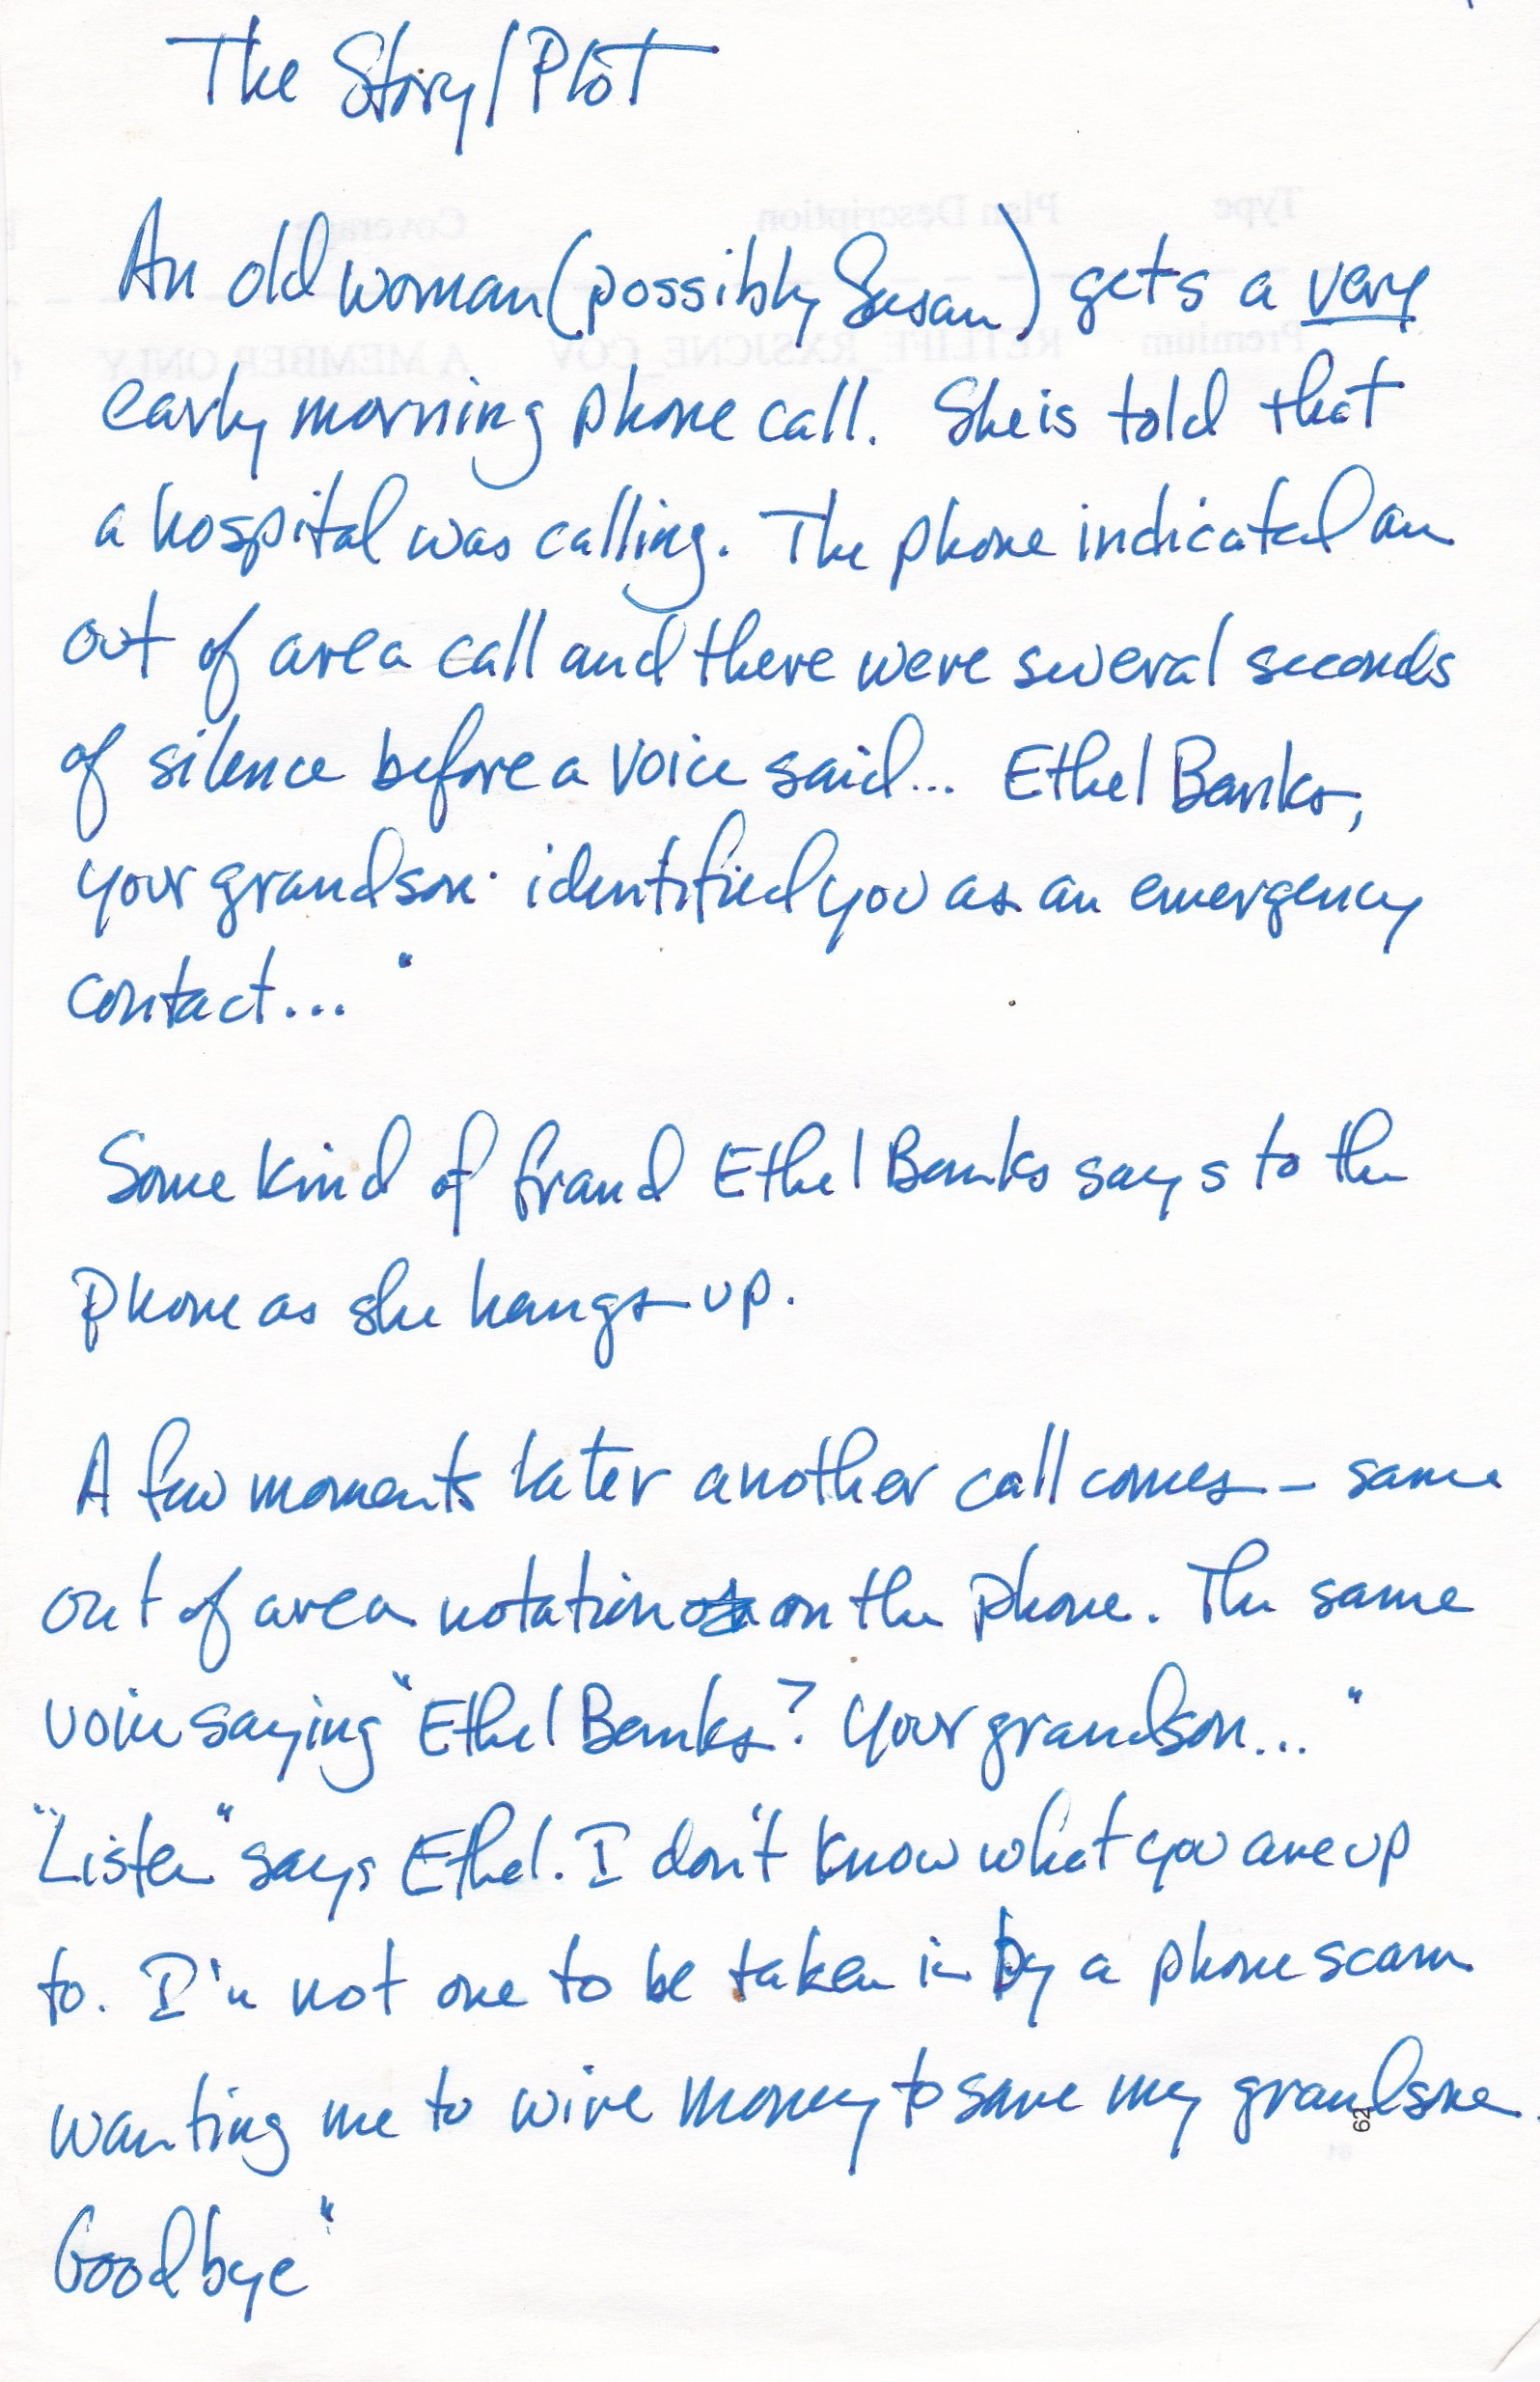 The Story/Plot
An old woman (possibly Susan) gets a very
early morning phone call. She is told that
a hospital was calling. The phone indicated an
out of area call and there were several seconds
of silence before a voice said... Ethel Banks,
your grandson identified you as an emergency
contact..."
Some kind of fraud Ethel Banks says to the
phone as she hangs up.
A few moments later another call comes - same
out of area notation on the phone. The same
voice saying "Ethel Banks? Your grandson..."
"Listen" says Ethel. I don't know what you are up
to. I'm not one to be taken in by a phone scam
wanting me to wire money to save my grandson.
62
Goodbye"
Type Plan Description Coverage
Premium RETLIFE_RXSJCNE_COV A MEMBER ONLY